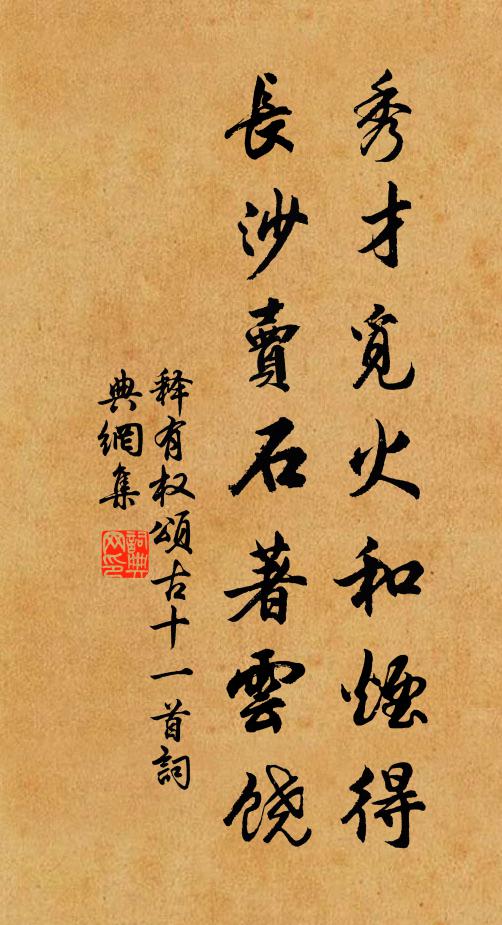 秀才覓火和煙得
長沙賣石著雲饒
释有权頌古十一首詞
典網集
詞典
网印